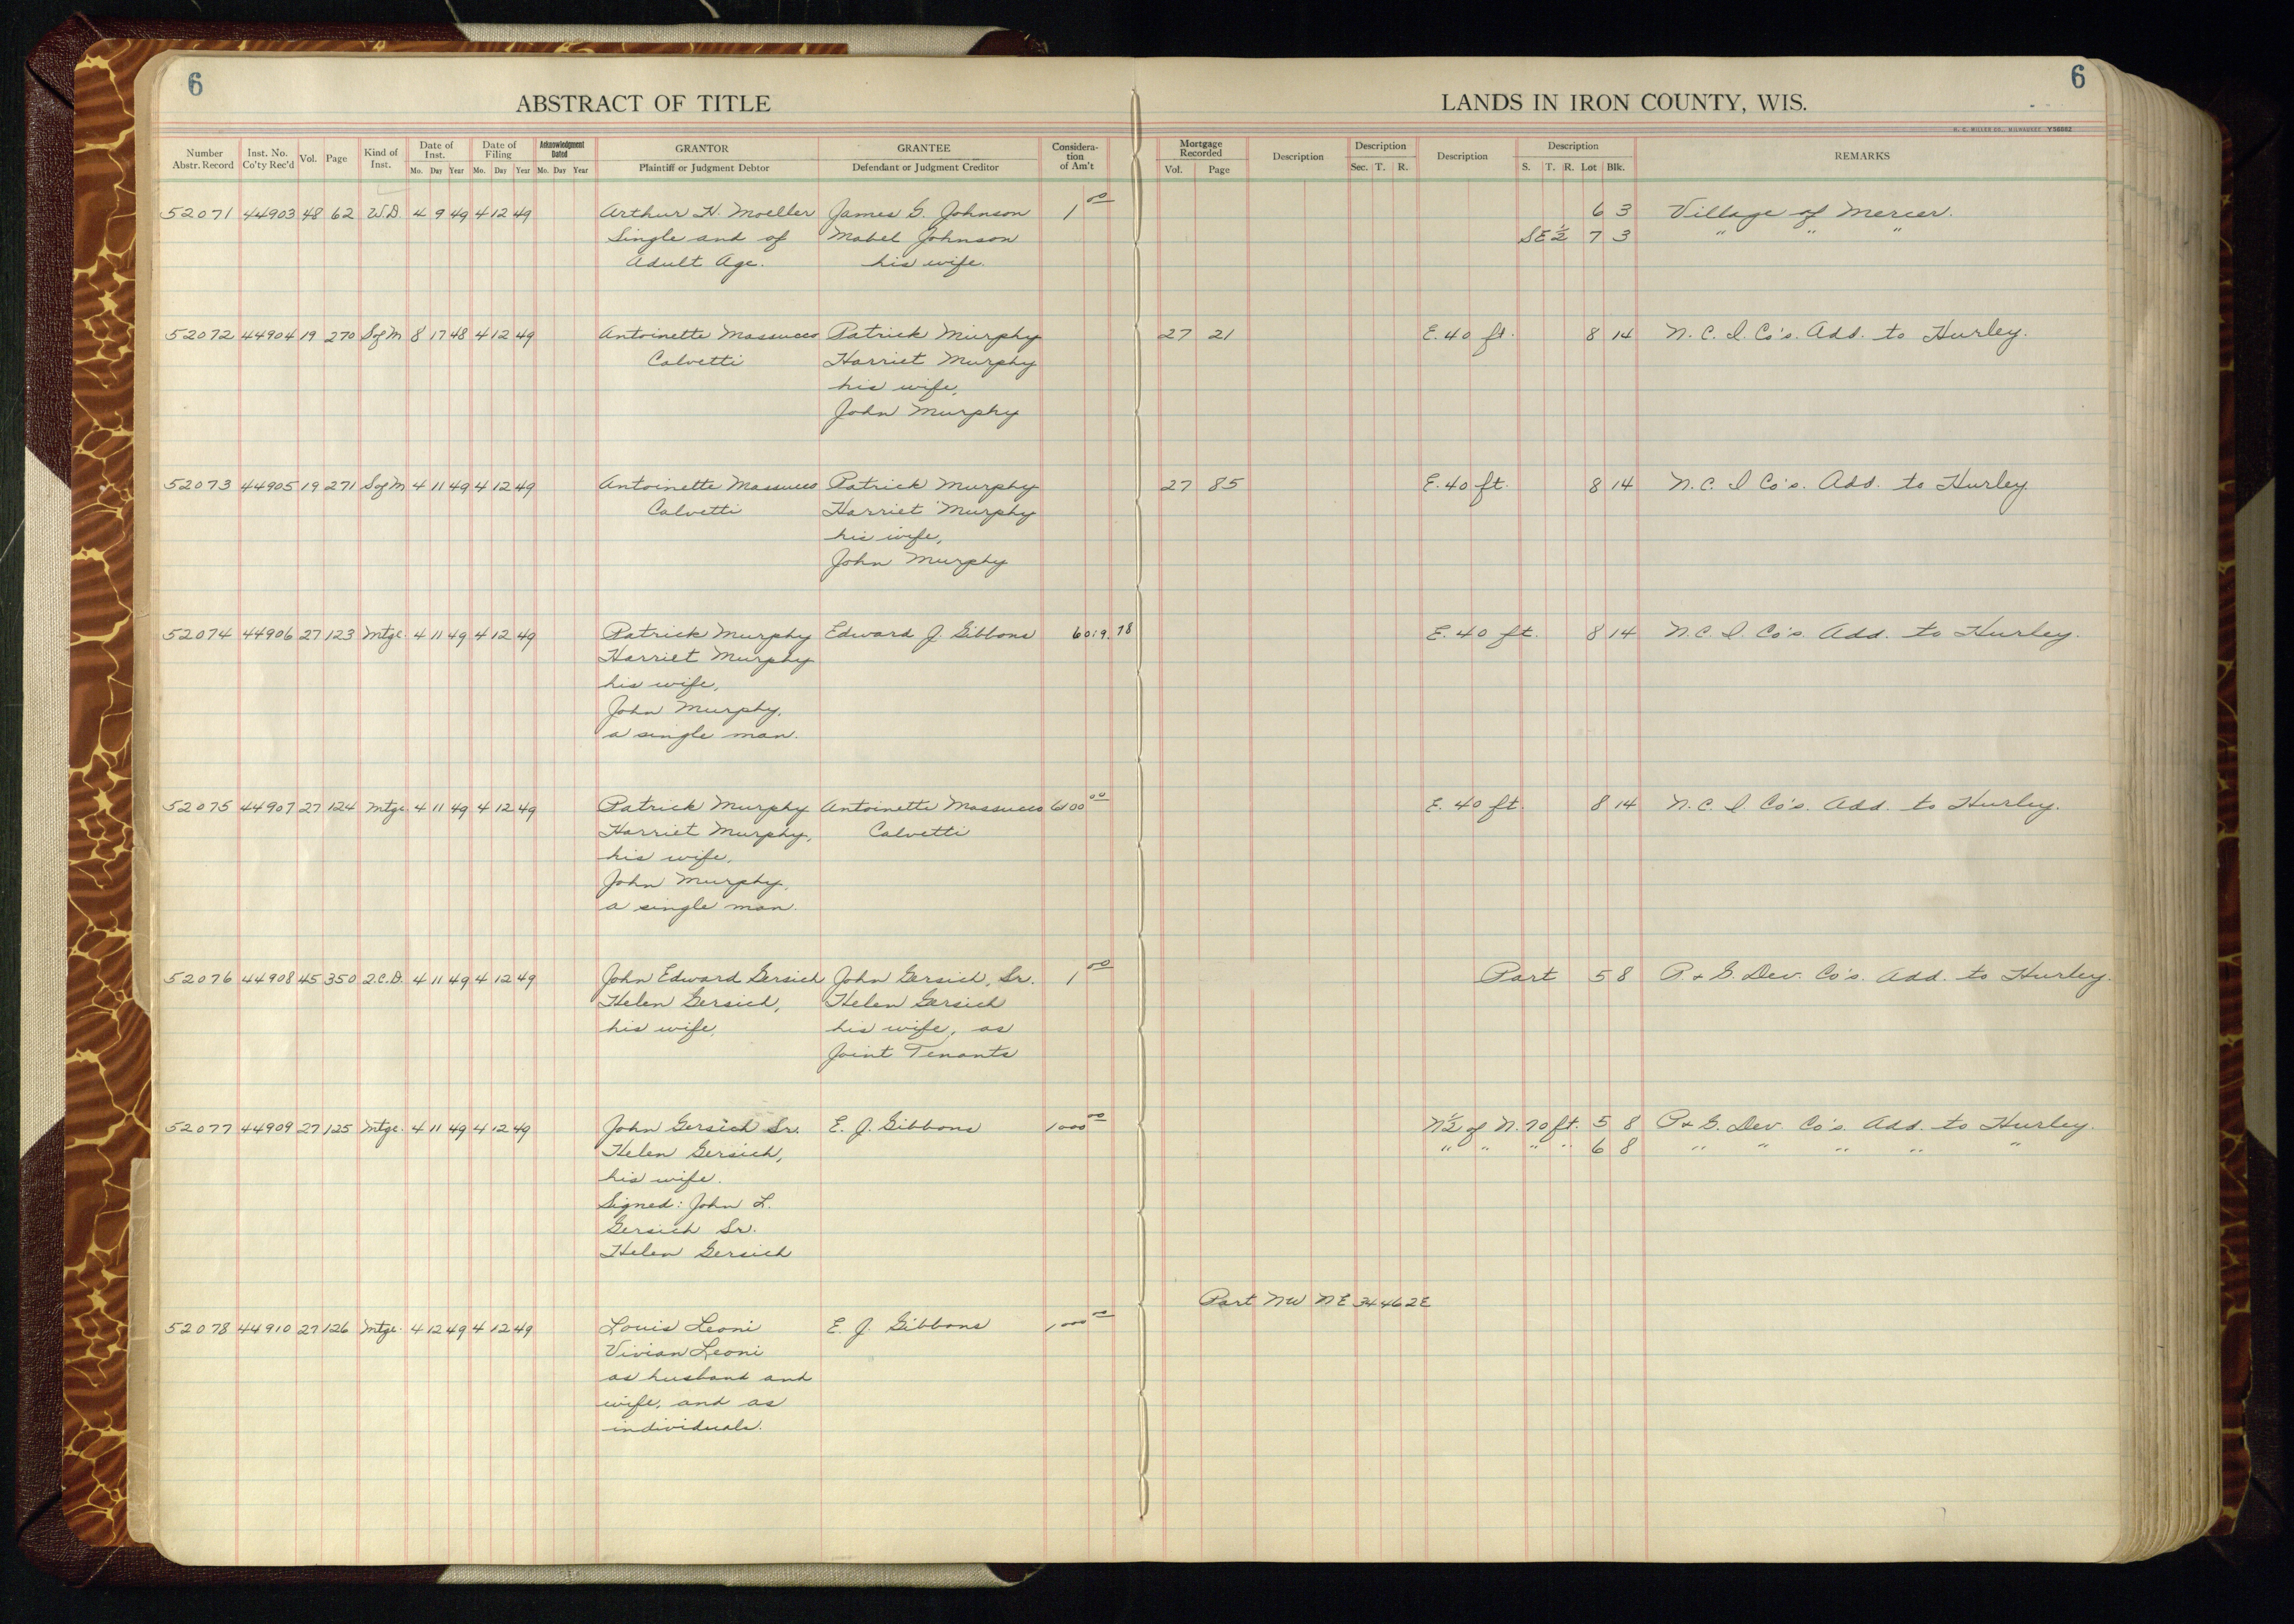 6
6
ABSTRACT OF TITLE
LANDS IN IRON COUNTY, WIS.
H. C. MILLER CO., MILWAUKEE Y58862
Number Abstr. Record Inst. No. Co'ty Rec'd Vol. Page Kind of Inst. Date of Inst. Mo. Day Year Date of Filing Mo. Day Year Acknowledgment Dated Mo. Day Year GRANTOR Plaintiff or Judgment Debtor GRANTEE Defendant or Judgment Creditor Considera-tion of Am't Mortgage Recorded Vol. Page Description Description Sec. T. R. Description Description S. T. R. Lot Blk. REMARKS
52071 44903 48 62 W.D. 4 9 49 4 12 49 Arthur H. Moeller James G. Johnson 1 00 6 3 Village of Mercer.
Single and of Mabel Johnson SE ½ 7 3 " " "
Adult Age. his wife.
52072 44904 19 270 S of M 8 17 48 4 12 49 Antoinette Massucco Patrick Murphy 27 21 E. 40 ft. 8 14 N. C. I. Co's. Add. to Hurley.
Calvetti Harriet Murphy
his wife,
John Murphy
52073 44905 19 271 S of M 4 11 49 4 12 49 Antoinette Massucco Patrick Murphy 27 85 E. 40 ft. 8 14 N. C. I Co's. Add. to Hurley.
Calvetti Harriet Murphy
his wife,
John Murphy
52074 44906 27 123 Mtge. 4 11 49 4 12 49 Patrick Murphy Edward J. Gibbons 6019.78 E. 40 ft. 8 14 N. C. I. Co's. Add. to Hurley.
Harriet Murphy
his wife,
John Murphy,
a single man.
52075 44907 27 124 Mtge 4 11 49 4 12 49 Patrick Murphy Antoinette Massucco 6100 00 E. 40 ft. 8 14 N. C. I. Co's. Add. to Hurley.
Harriet Murphy, Calvetti
his wife,
John Murphy,
a single man.
52076 44908 45 350 Q.C.D. 4 11 49 4 12 49 John Edward Gersich John Gersich, Sr. 1 00 Part 5 8 P. & G. Dev. Co's. Add. to Hurley.
Helen Gersich, Helen Gersich
his wife, his wife, as
Joint Tenants
52077 44909 27 125 Mtge. 4 11 49 4 12 49 John Gersich Sr. E. J. Gibbons 1000 00 N½ of N. 70 ft. 5 8 P & G. Dev. Co's. Add. to Hurley.
Helen Gersich, " " " " 6 8 " " " " "
his wife.
Signed: John L.
Gersich Sr.
Helen Gersich
Part NW NE 34 46 2E
52078 44910 27 126 Mtge. 4 12 49 4 12 49 Louis Leoni E. J. Gibbons 1000 00
Vivian Leoni
as husband and
wife, and as
individuals.